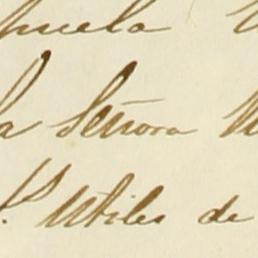 huela
la Señora
Utiles de